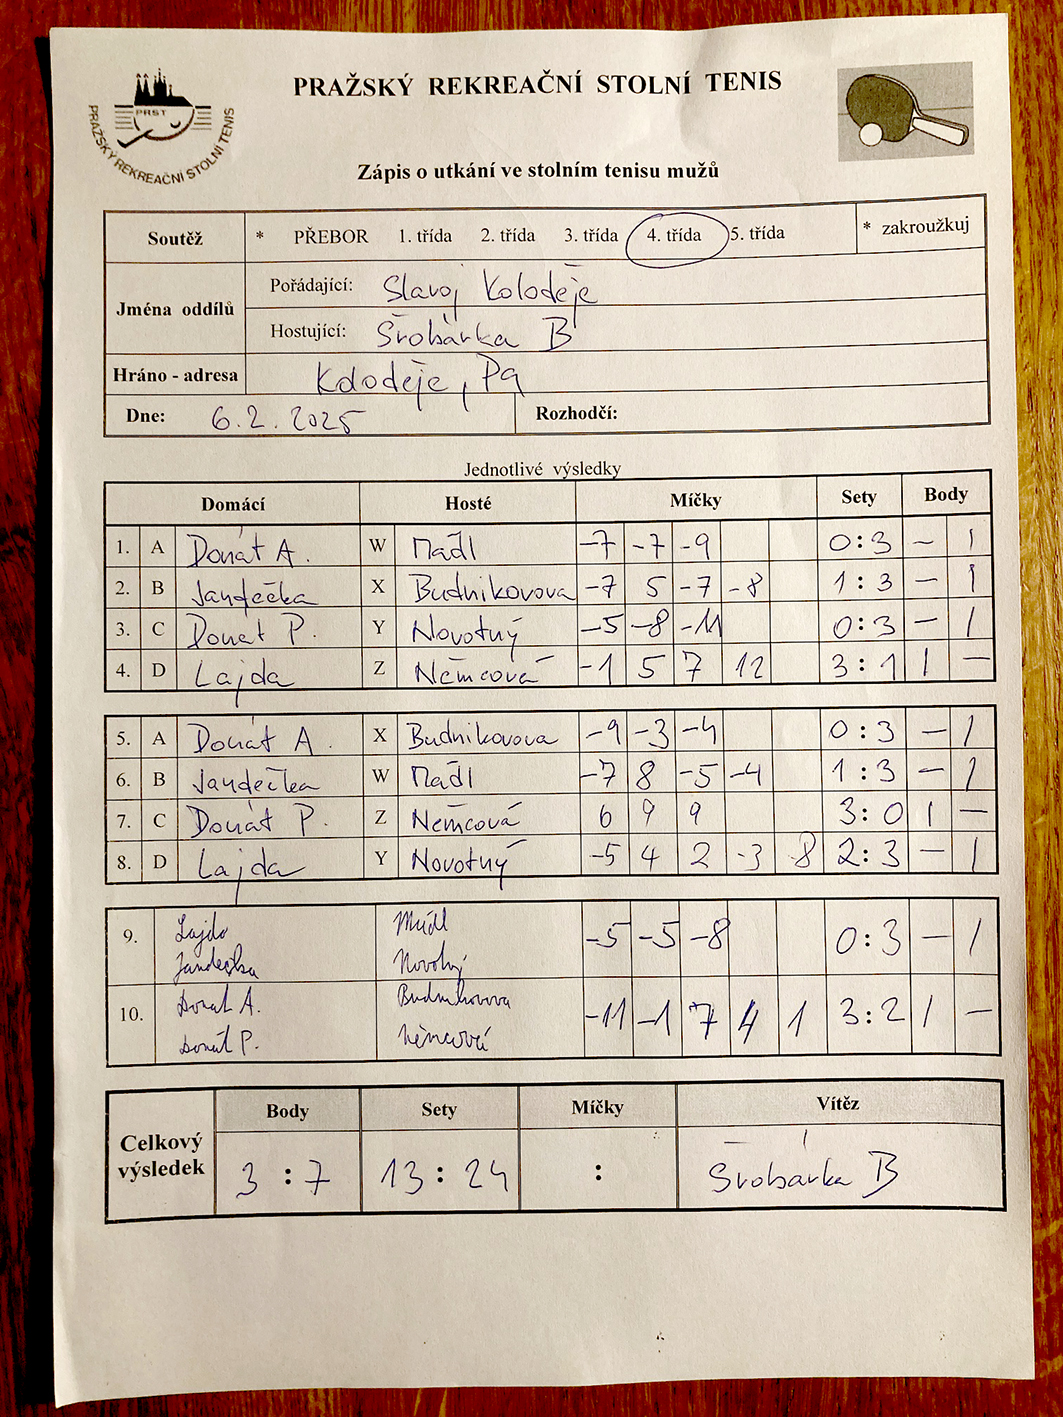 PRAŽSKÝ REKREAČNÍ STOLNÍ TENIS
PRST
PRAŽSKÝ REKREAČNÍ STOLNÍ TENIS
Zápis o utkání ve stolním tenisu mužů
Soutěž * PŘEBOR 1. třída 2. třída 3. třída 4. třída 5. třída * zakroužkuj
Jména oddílů
Pořádající: Slavoj Koloděje
Hostující: Šrobárka B
Hráno - adresa Koloděje, P9
Dne: 6.2.2025 Rozhodčí:
Jednotlivé výsledky
Domácí Hosté Míčky Sety Body
1. A Donát A. W Mádl -7 -7 -9 0:3 - 1
2. B Jandečka X Budnikovova -7 5 -7 -8 1:3 - 1
3. C Donát P. Y Novotný -5 -8 -11 0:3 - 1
4. D Lajda Z Němcová -1 5 7 12 3:1 1 -
5. A Donát A. X Budnikovova -9 -3 -4 0:3 - 1
6. B Jandečka W Mádl -7 8 -5 -4 1:3 - 1
7. C Donát P. Z Němcová 6 9 9 3:0 1 -
8. D Lajda Y Novotný -5 4 2 -3 -8 2:3 - 1
9. Lajda Mádl -5 -5 -8 0:3 - 1
Jandečka Novotný
10. Donát A. Budnikovova -11 -1 7 4 1 3:2 1 -
Donát P. Němcová
Celkový výsledek
Body Sety Míčky Vítěz
3:7 13:24 : Šrobárka B